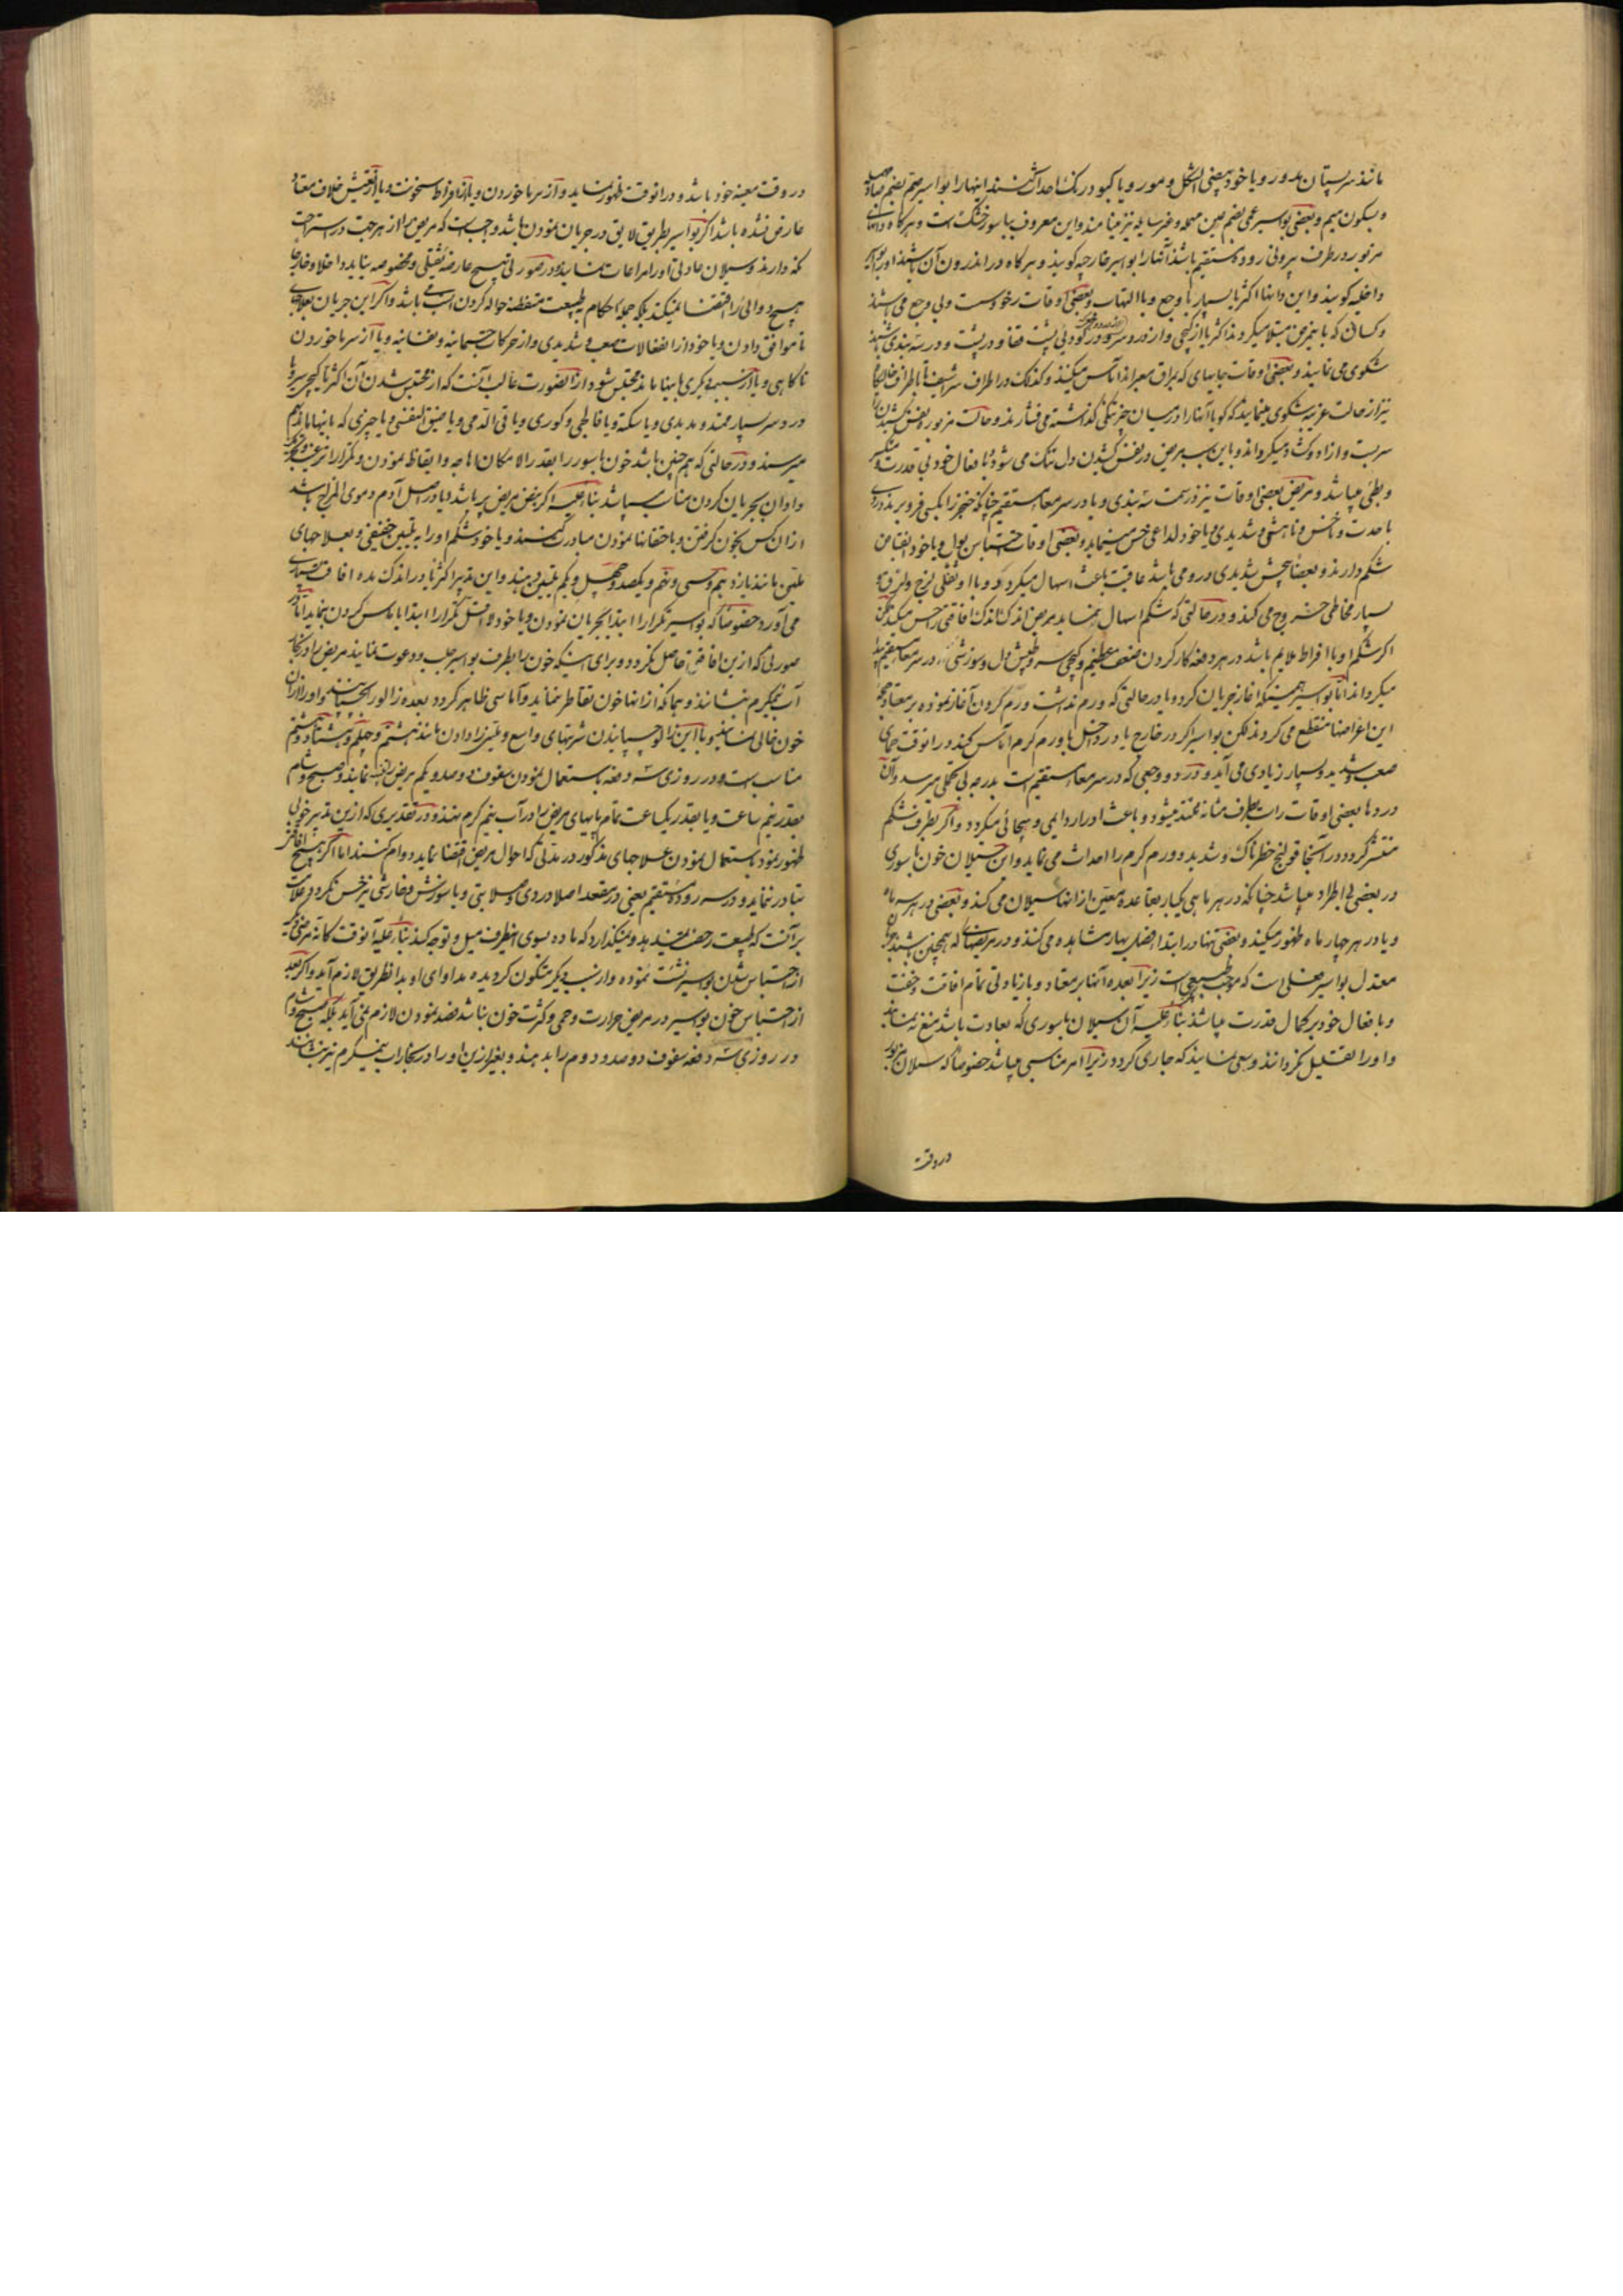 مانند سر پستان مدور و یا خود بیضی الشکل و مور و یا کبود رنک احداث کنند اینها را بواسیر صم بضم صاد مهمله
و بسکون میم و بعضی بواسیر عمی بضم عین مهمله و غیر سایله نیز مینامند و این معروف بباسور خشک است و هر کاه دانهای
مزبوره در طرف بیرونی روده مستقیم باشند آنها را بواسیر خارجیه کویند و هر کاه در اندرون آن باشند اورا بواسیر
داخلیه کویند و این دانها اکثریا بسیار با وجع و با التهاب و بعضی اوقات رخوست و بی وجع می باشند
و کسانی که باینمرض مبتلا میکردند اکثریا از کیجی و از درد سر و در کودی پشت قفا و در پشت و در سته بندی
شکوی می نمایند و بعضی اوقات جایهای که براق معبر اند آماس میکنند و کذلک در اطراف شراسیف با طراف
نیز از حالت غریبه شکوی مینمایند که کویا آنها را در میان چیز تنکی کذاشته می فشارند و حالت مزبوره نفس کشیدن را
سربست و آزاده و کشاده میکرداند و باین سبب مریض در نفس کشیدن دل تنک می شود و با فعال خود بی قدرت و متکسر
و بطئ میباشد و مریض بعضی اوقات نیز در سمت سته بندی و یا در سر معاء مستقیم چنانکه خنجر را بکسی فرو برند دردی
با حدت و ناخس و ناهشی و شدیدی و یا خود لداعی حس مینماید و بعضی اوقات احتباس بول و یا خود انقباض
شکم دارند و بعضاً پیچش شدیدی در و می باشد عاقبت باعث اسهال میکردد و با او ثفلی لزج و لزق و
بسیار مخاطی خروج می کند و در حالتی که شکم اسهال بنماید مریض اندک اندک افاقتی را حس میکند لکن
اکر شکم او با افراط ملایم باشد در هر دفعه کار کردن ضعف عظیم و کیجی سر و طپش دل و سوزشی در سر معاء مستقیم پیدا
میکرداند اما بواسیر همینکه آغاز جریان کرد و یا در حالتی که ورم نداشت ورم کردن آغاز نموده بر معتاد
این اعراضها منقطع می کردند لکن بواسیر اکر در خارج یا در داخل با ورم کرم آماس کیند در انوقت حمای
صعب و شدید و بسیار زیادی می آید و درد و وجعی که در سر معاء مستقیم است بدرجه بی تحملی میرسد و آن
دردها بعضی اوقات راست بطرف مثانه ممتد میشود و باعث ادرار دایمی و هیجانی میکردد و اکر بطرف شکم
منتشر کردد در آنجا قولنج خطرناک و شدید و ورم کرم را احداث می نماید و این سیلان خون باسوری
در بعضی بی اطراد میباشد چنانکه در هر ماهی یکبار بقاعده معین از انها سیلان می کند و بعضی در هر سه ماه
و یا در هر چهار ماه ظهور میکیند و بعضی تنها در ابتداء فصل بهار مشاهده می کنند و در مریضهای که همچنین باشند
معتدل بواسیر فعلی است که موجب طبیعی است زیرا بعده آنها بر معتاد و با زیادتی تمام افاقت و خفت
و با فعال خود بر کمال قدرت میباشند بناء علیه آن سیلان باسوری که بعادت باشد منع ننمایند
و او را تقلیل نکردانند و سعی نمایند که جاری کردد زیرا امر مناسبی میباشد خصوصاً که سیلان مزبور
در وقت
در وقت معینه خود باشد و در انوقت ظهور نماید و از سرما خوردن و یا از افراط سخونت و یا از تعیش خلاف معتاد
عارض نشده باشد اکر بواسیر بطریق لایق در جریان نمودن باشد واجب است که مریض را از هر جهت در استراحت
نکه دارند و سیلان عادتی او را مراعات نمایند و در صورتی هیچ عارضه ثقیلی و مخصوصه نیابد داخلا و خارجا
هیچ دوائی را اقتضا نمیکند بلکه جمله احکام بطبیعت متیقظه حواله کردن انسب می باشد و اکر این جریان بعلاجهای
ناموافق دادن و یا خود از انفعالات صعب و شدیدی و از حرکات جسمانیه و نفسانیه و یا از سرما خوردن
ناکاهی و یا از سبب دیکری باینها ماند محتبس شود در آن صورت غالب آنست که از محتبس شدن آن اکثریا کیجی سر و یا
درد سر بسیار ممتد و مدیدی و یا سکته و یا فالجی و کوری و یا قی الدمی و یا ضیق النفسی و یا چیزی که باینها ماند بهم
میرسد و در حالتی که هم چنین باشد خون باسور را بقدر الامکان اهاجه و ایقاظ نمودن و تکرار ترغیب و تحریک
و او را بجریان کردن مناسب میباشد بناء علیه اکر نبض مریض پر باشد و یا در اصل آدم دموی المزاج باشد
از ان کس بخون کرفتن و با حقنها نمودن مبادرت کنند و یا خود شکم او را به تلیین خفیفی و بعلاجهای
ملین مانند یازدهم و سی و پنجم و یکصد و چهل و یکم تلیین دهند و این تدبیر اکثریا در اندک مده افاقت بسیاری
می آورد خصوصاً که بواسیر تکرارا ابتدا بجریان نمودن و یا خود لااقل تکرارا ابتدا باماس کردن بنماید اما در
صورتی که ازین افاقتی حاصل نکردد و برای اینکه خون را بطرف بواسیر جلب و دعوت نمایند مریض را در بخار
آب نیمکرم بنشانند و بجائی که از انها خون تقاطر نماید و آماسی ظاهر کردد بعده زالو را بچسپانند و او را از ان
خون خالی نمایند و با این زالو چسپانیدن شربتهای واسع و ملین را دادن مانند هشتم و چهلم و هشتاد و هشتم
مناسب است و در روزی سه دفعه باستعمال نمودن سفوف دوصد و یکم مریض را دوا نمایند و صبح و شام
بقدر نیم ساعت و یا بقدر یکساعت تمام پایهای مریض را در آب نیم کرم نهند و در تقدیری که ازین تدبیر خوبی
ظهور نمود باستعمال نمودن علاجهای مذکور در مدتی که احوال مریض اقتضا نماید دوام کنند اما اکر هیچ افاقتی
تبادر ننماید و در سر روده مستقیم یعنی در مقعد اصلا دردی و صلابتی و یا سوزش و خارشی نیز حس نکردد علامت
بر آنست که طبیعت رخصت نمیدهد و نمیکذارد که ماده بسوی انطرف میل و توجه کند بناء علیه آنوقت کانه مرضی دیکر
از احتباس شدن بواسیر نشئت ننموده و از سبب دیکر متکون کردیده مداوای او بدانطریق لازم آید و اکر بعد
از احتباس خون بواسیر در مریض حرارت و حمی و کثرت خون نباشد فصد نمودن لازم نمی آید بلکه صبح و شام
در روزی سه دفعه سفوف دوصد و دوم را بدهند و بغیر ازین او را در بخار آب نیمکرم نیز بنشانند